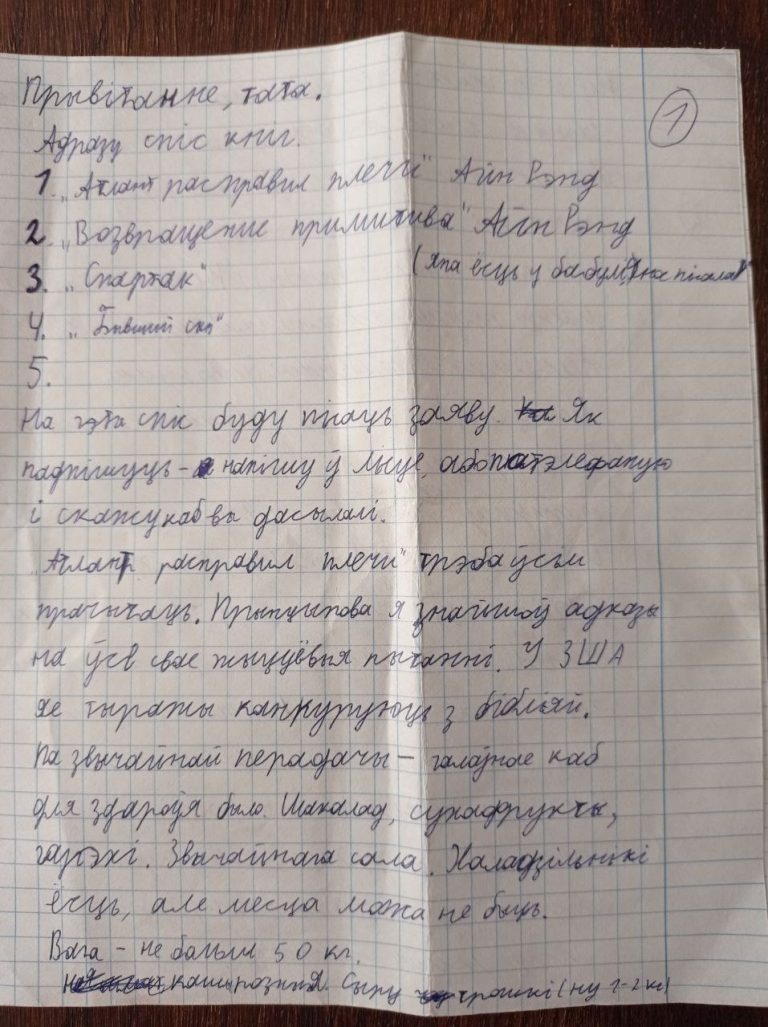 Прывітанне, тата.
1
Адразу спіс кніг.
1. „Атлант расправил плечи" Айн Рэнд
2. „Возвращение примитива" Айн Рэнд
3. „Спартак" (яна ёсць у бабулі, яна пісала)
4. „Бывший
5.
На гэты спіс буду пісаць заяву. Як
падпішуць - напішу ў лісце, або патэлефаную
і скажу каб вы дасылалі.
„Атлант расправил плечи" трэба ўсім
прачытаць. Прынцыпова я знайшоў адказы
на ўсе свае жыццёвыя пытанні. У ЗША
яе тыражы канкуруюць з бібліяй.
Па звычайнай перадачы - галоўнае каб
для здароўя было. Шакалад, сухафрукты,
гарэхі. Звычайнага сала. Халадзільнікі
ёсць, але месца можа не быць.
Вага - не больш 50 кг.
кашы розныя. Сыру трошкі (ну 1-2 кг)